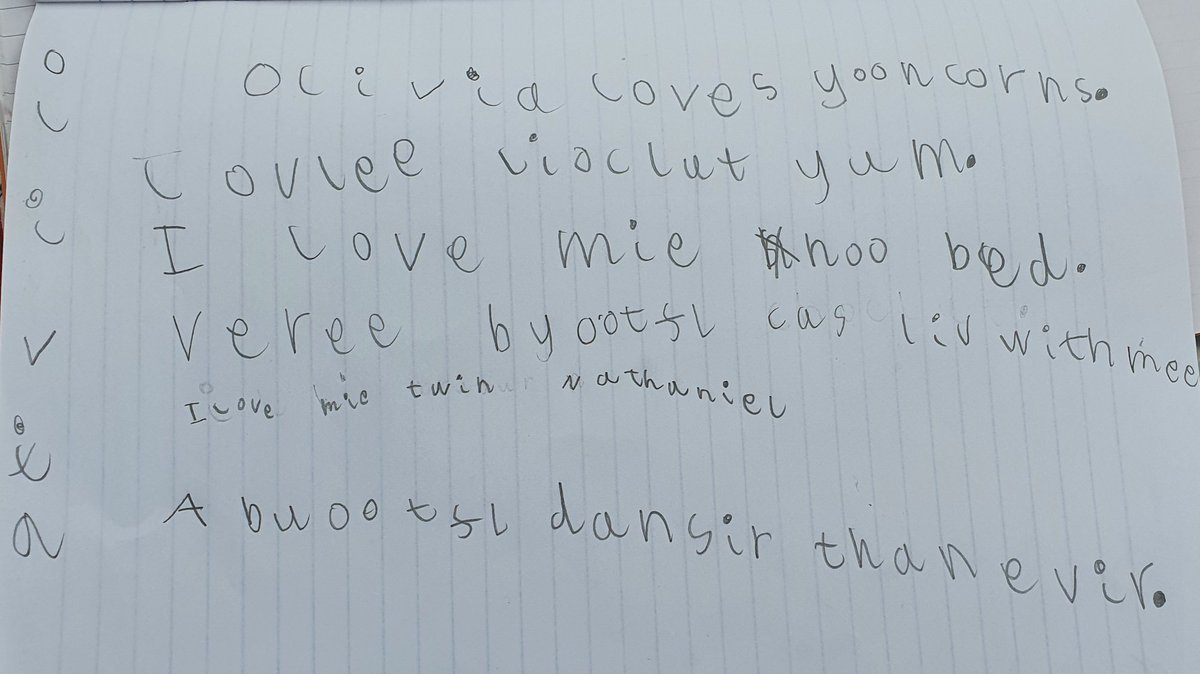 o Olivia loves yooncorns.
l Lovlee yum.
i I love mie noo bed.
v veree byootfl cas liv with mee
i I love mie twin Nathaniel
a A buootfl dansir than evir.